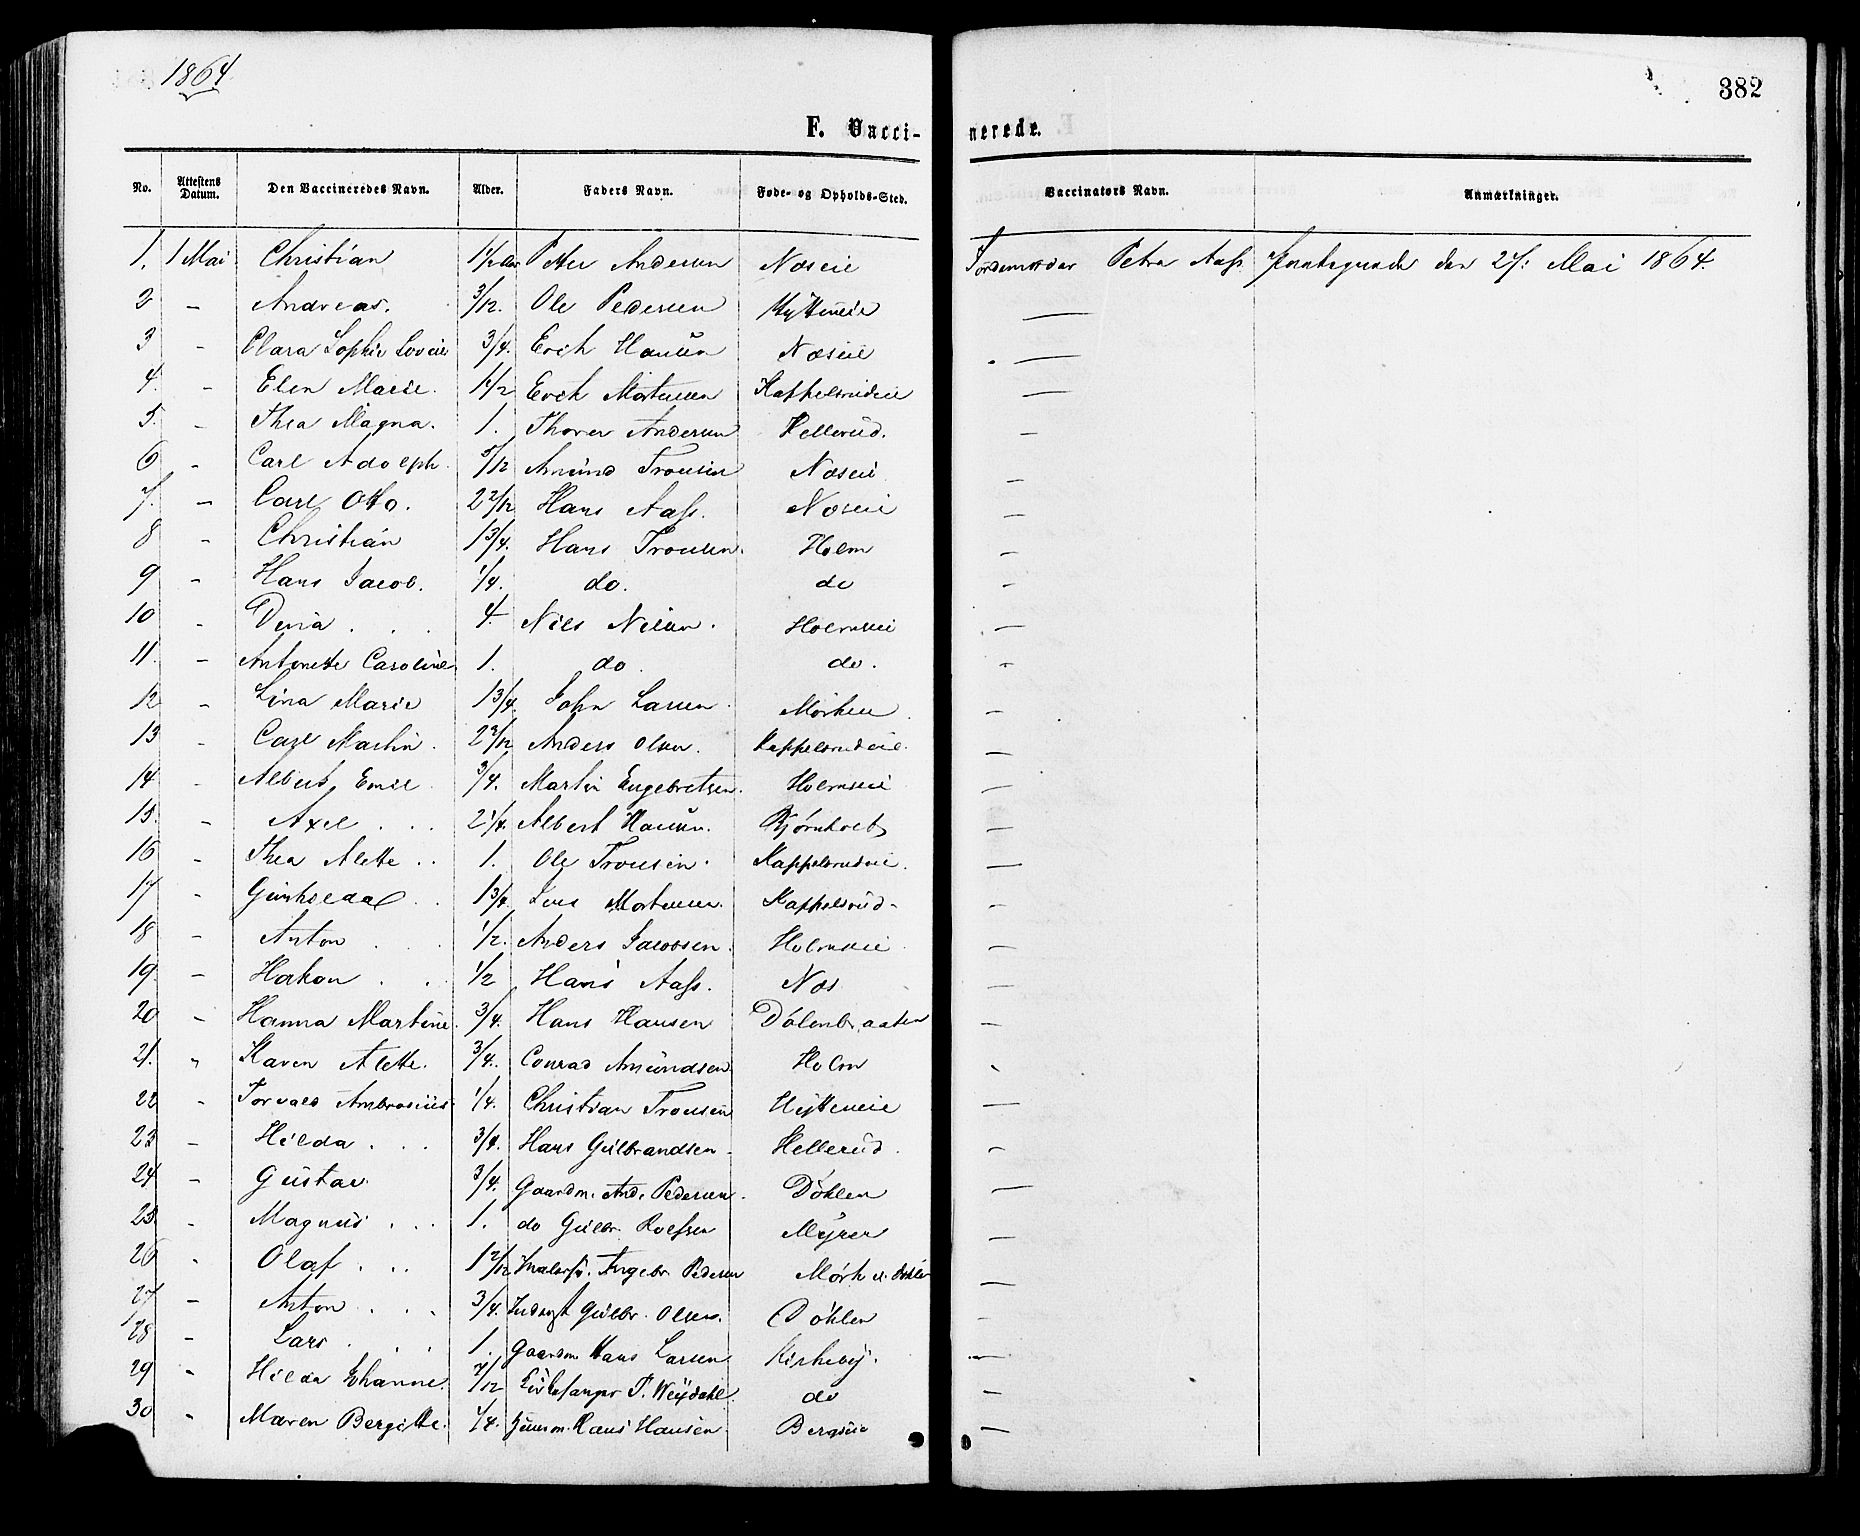 1864
382
F. Vacci-
nerede.
No. Attestens Datum. Den Vaccineredes Navn. Alder. Faders Navn. Føde- og Opholds-Sted. Vaccinators Navn. Anmærkninger.
1. 1 Mai Christian 1 1/2 Aar Peter Andersen Næseie Jordemoder Petra Aass den 27: Mai 1864.
2 – Andreas. 3/12. Ole Pedersen Hytteneie —
3 – Clara Sophie 3/4. Erik Hansen Næseie —
4. – Elen Marie. 1 1/2 Erik Mortensen Kappelsrudeie —
5. – Thea Magna. 1. Thorer Andersen Hellerud. —
6 – Carl Adolph. 5/12 Amund Tronsen Næseie —
7. – Carl Otto. 2 2/12 Hans Aass. Næseie —
8 – Christian 1 3/4. Hans Tronsen. Holm —
9 – Hans Jacob. 1/4. do. do —
10 – Dina . . . 4. Nils Nilsen. Holmseie —
11. – Antonette Caroline 1. do. do. —
12 – Lina Marie 1 3/4. John Larsen. Mørkeie —
13 – Carl Martin. 2 2/12 Anders Olsen. Kappelsrudeie. —
14 – Albert Emil 3/4. Martin Engebretsen. Holmseie —
15. – Axel . . . 2 1/4. Albert Hansen. Bjørnholt —
16 – Thea Alette . . 1. Ole Tronsen. Kappelsrudeie. —
17 – Gunhilda . . 1 3/4 Jens Mortensen. Kappelsrud. —
18 – Anton . . . 1/2. Anders Jacobsen. Holmseie —
19 – Hakon . . . 1/2 Hans Aass. Næs —
20 – Hanna Martine. 3/4. Hans Hansen Dølenbraaten —
21. " Karen Alette. 3/4. Conrad Amundsen Holm
22 – Torvald Ambrosius 1/4. Christian Tronsen Hytteneie —
23 – Hilda . . . 3/4. Hans Gulbrandsen. Hellerud. —
24 – Gustav. 3/4. Gaardm. And. Pedersen. Døhlen —
25. – Magnus . . . 1. do Gulbr. Rolfsen Myrer —
26 " Olaf . . . 1 2/12 Engebr. Pedersen Mørk —
27 – Anton . . . 3/4. Inderst Gulbr. Olsen. Døhlen —
28 – Lars . . . 1. Gaardm Hans Larsen Kirkeby. —
29 " Hilda Johanne. 7/12 Kirkesanger P. Weydahl. do —
30 " Maren Bergitte. 1/4. Huusm. Hans Hansen. Bergseie —